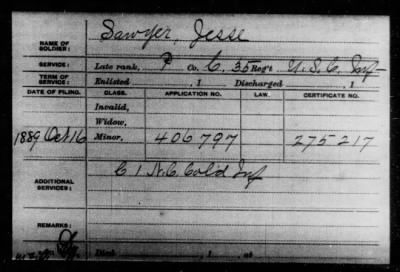 NAME OF SOLDIER: Sawyer, Jesse
SERVICE: Late rank, P Co. C, 35 Reg't U.S.C. Inf
TERM OF SERVICE: Enlisted , 1 Discharged , 1
DATE OF FILING. CLASS. APPLICATION NO. LAW. CERTIFICATE NO.
Invalid,
Widow,
1889 Oct 16 Minor, 406797 275217
ADDITIONAL SERVICES: C 1 N.C. Col'd Inf
REMARKS:
Died , 1 at